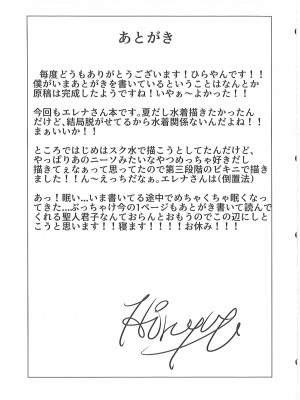 あとがき
毎度どうもありがとうございます！ひらやんです！！
僕がいまあとがきを書いているということはなんとか
原稿は完成したようですね！いやぁ～よかった！！
今回もエレナさん本です。夏だし水着描きたかったん
だけど、結局脱がせてるから水着関係ないんだよね！！
まぁいいか！！
ところではじめはスク水で描こうとしてたんだけど、
やっぱりあのニーソみたいなやつめっちゃ好きだし
描きてぇなぁって思ってたので第三段階のビキニで描き
ました！！ん～えっちだなぁ。エレナさんは(倒置法)
あっ！眠い…いま書いてる途中でめちゃくちゃ眠くなっ
てきた…ぶっちゃけ今の1ページもあとがき書いて読んで
くれる聖人君子なんておらんとおもうのでこの辺にしと
こうと思います！！寝ます！！！！お休み！！！